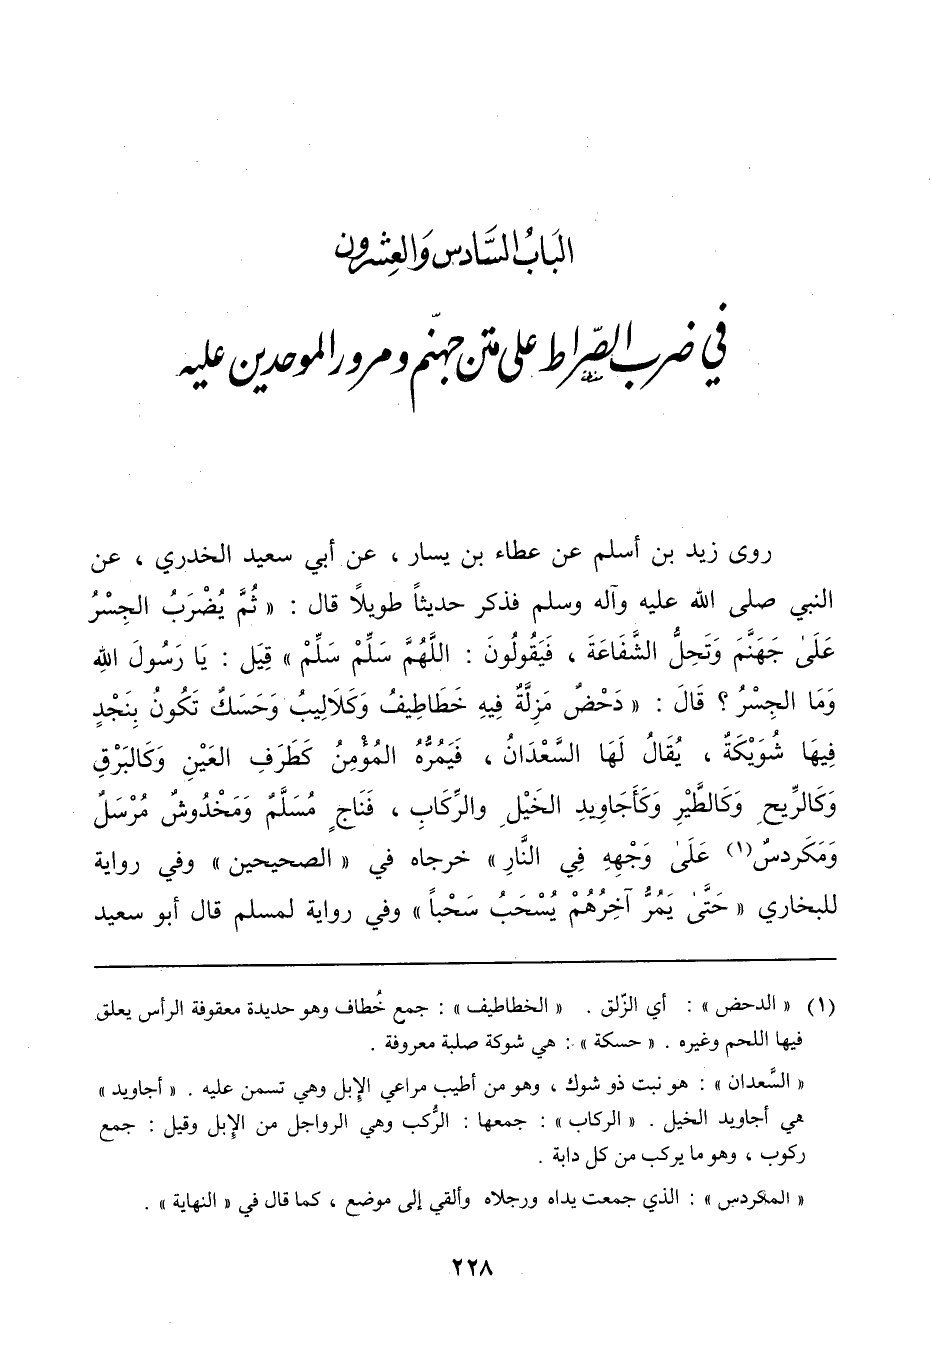 البَابُ السَّادس وَالعِشرون
في ضرب الصّراط على متن جهنّم ومرور الموحدين عليه
روى زيد بن أسلم عن عطاء بن يسار ، عن أبي سعيد الخدري ، عن
النبي صلى الله عليه وآله وسلم فذكر حديثاً طويلاً قال : « ثُمَّ يُضْرَبُ الجِسْرُ
عَلَىٰ جَهَنَّمَ وَتَحِلُّ الشَّفَاعَةَ ، فَيَقُولُونَ : اللَّهُمَّ سَلِّمْ سَلِّمْ » قِيَل : يَا رَسُولَ اللهِ
وَمَا الجِسْرُ ؟ قَالَ : « دَحْضٌ مَزِلَّةٌ فِيهِ خَطَاطِيفُ وَكَلَالِيبُ وَحَسَكٌ تَكُونُ بِنَجْدٍ
فِيهَا شُوَيْكَةٌ ، يُقَالُ لَهَا السَّعْدَانُ ، فَيَمُرُّهُ المُؤْمِنُ كَطَرَفِ العَيْنِ وَكَالبَرْقِ
وَكَالرِّيحِ وَكَالطَّيْرِ وَكَأَجَاوِيدِ الخَيْلِ والرِّكَابِ ، فَنَاجٍ مُسَلَّمٌ وَمَخْدُوشٌ مُرْسَلٌ
وَمَكَردسٌ(١) عَلَىٰ وَجْهِهِ فِي النَّارِ » خرجاه في « الصحيحين » وفي رواية
للبخاري « حَتَّىٰ يَمُرُّ آخِرُهُمْ يُسْحَبُ سَحْباً » وفي رواية لمسلم قال أبو سعيد
(١) « الدحض » : أي الزّلق . « الخطاطيف » : جمع خُطاف وهو حديدة معقوفة الرأس يعلق
فيها اللحم وغيره . « حسكة » : هي شوكة صلبة معروفة .
« السَّعدان » : هو نبت ذو شوك ، وهو من أطيب مراعي الإبل وهي تسمن عليه . « أجاويد »
هي أجاويد الخيل . « الركاب » : جمعها : الرُّكب وهي الرواجل من الإبل وقيل : جمع
ركوب ، وهو ما يركب من كل دابة .
« المكردس » : الذي جمعت يداه ورجلاه وألقي إلى موضع ، كما قال في « النهاية » .
٢٢٨